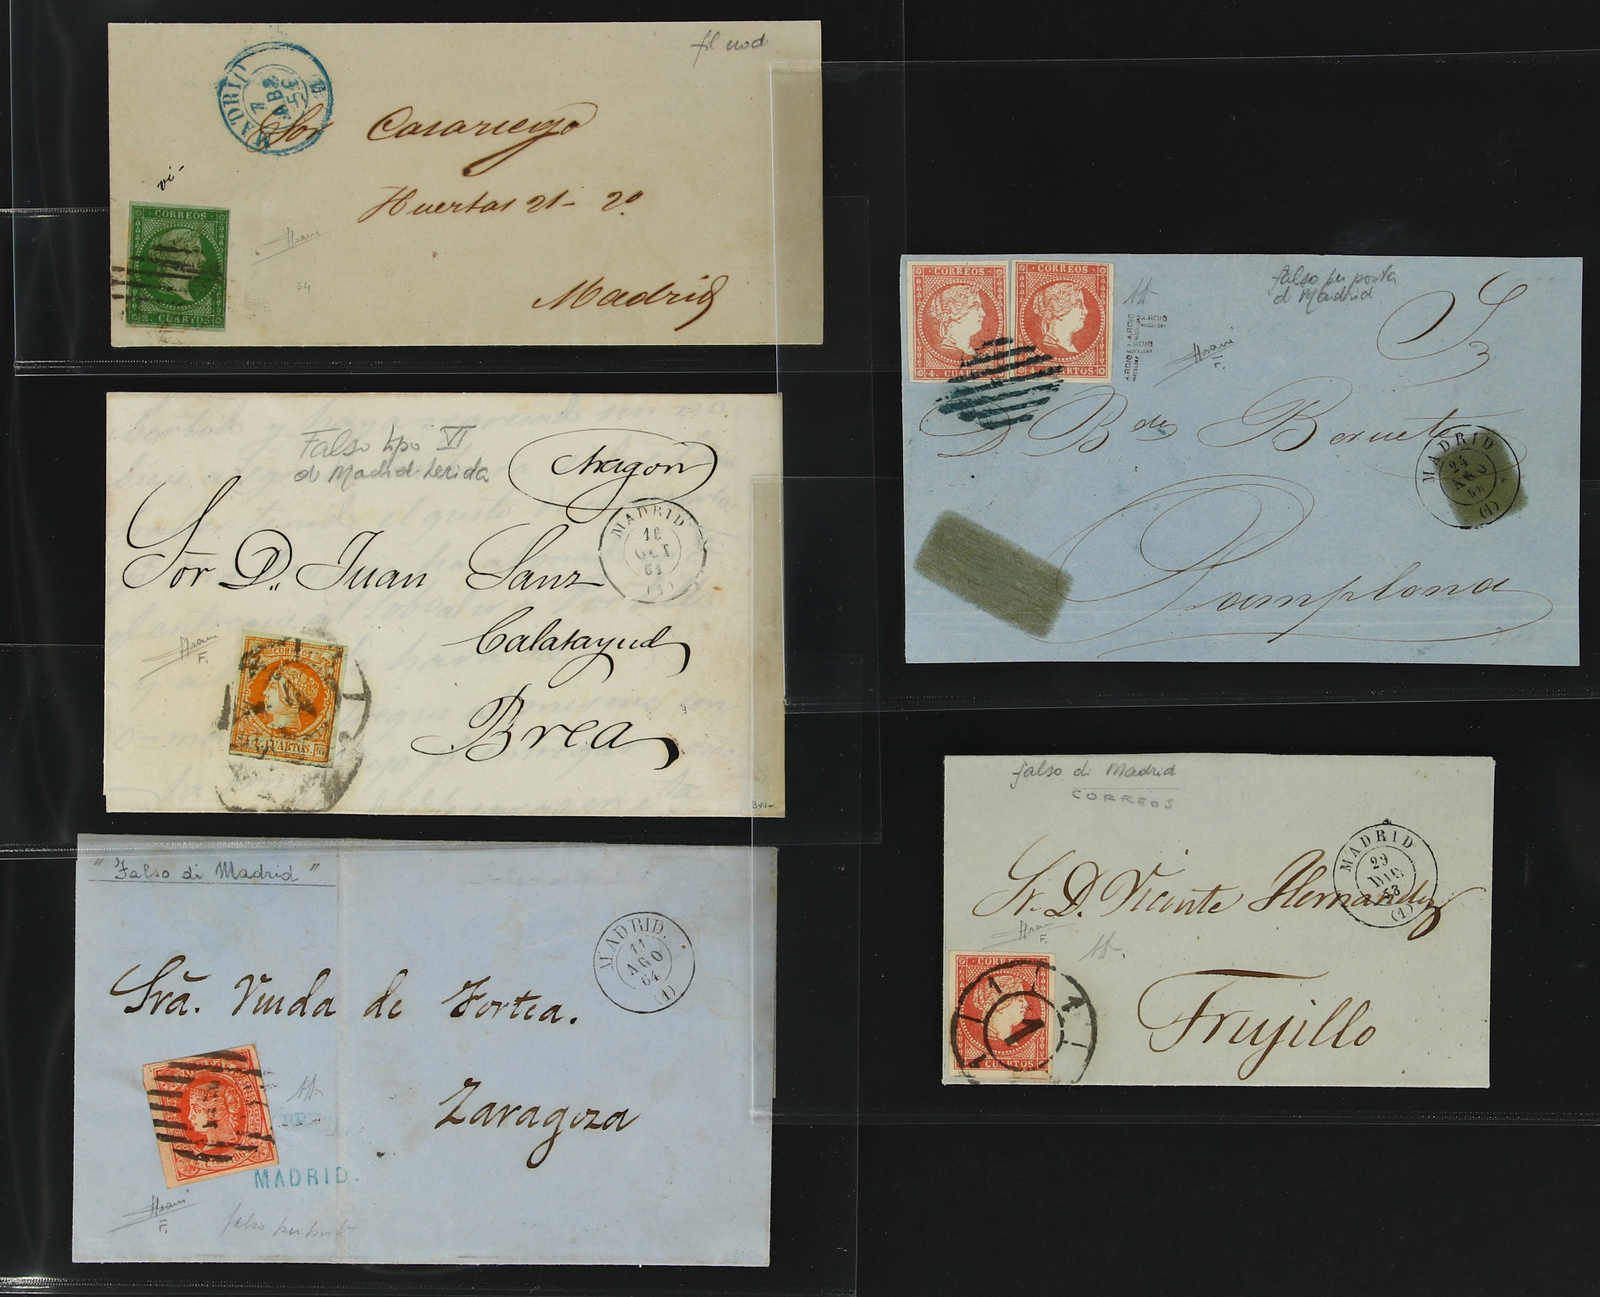 MADRID
7
AB
53
Sor Casariego
Huertas 21 - 2º
Madrid
vi -
CORREOS
CUARTOS
34
Falso tipo VI
di Madrid-Lerida
Aragon
MADRID
OCT
61
Sor D. Juan Sanz
Calatayud
Brea
F.
CORREOS
CUARTOS.
"Falso di Madrid"
MADRID.
11
AGO
64
(1)
Sra. Viuda de Fortea.
Zaragoza
MADRID.
F.
falso per posta
falso per posta
di Madrid
CORREOS
CORREOS
4. CUARTOS
4. CUARTOS
S
D Bdo Beruete
MADRID
24
AGO
(1)
Pamplona
falso di Madrid
CORREOS
MADRID
29
DIC
58
(1)
Sr. D. Vicente Hernandez
F.
Trujillo
CORREOS
CUARTOS
1
1
1